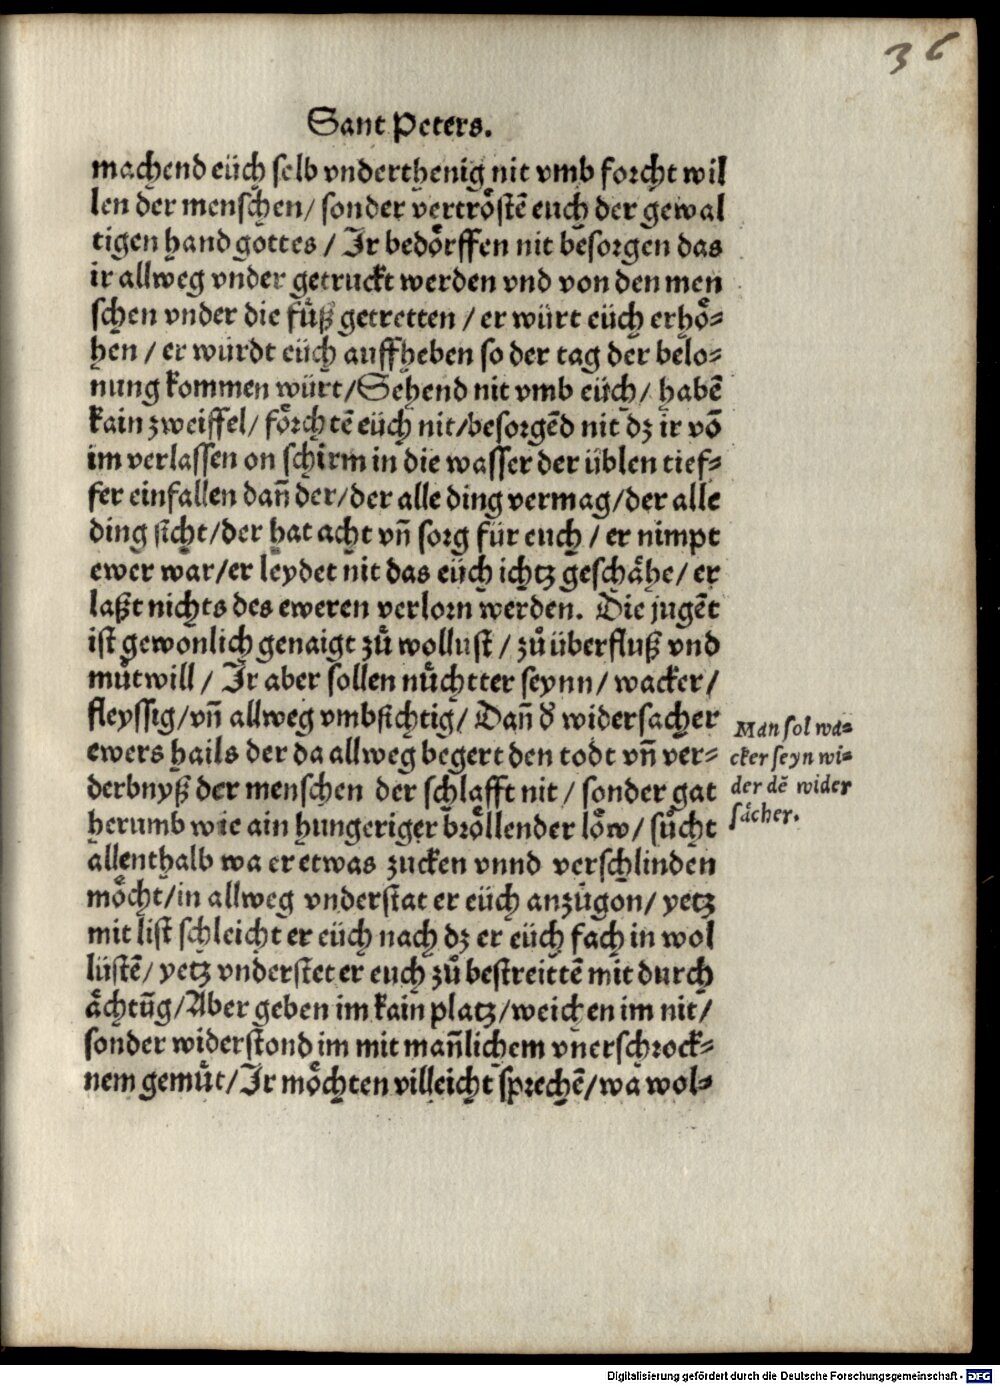 36
Sant Peters.
machend eüch selb vnderthenig nit vmb forcht wil
len der menschen/ sonder vertröstẽ euch der gewal
tigen hand gottes / Ir bedörffen nit besorgen das
ir allweg vnder getruckt werden vnd von den men
schen vnder die fuͤß getretten / er würt eüch erhoͤ-
hen / er wurdt eüch auffheben so der tag der belo-
nung kommen würt/Sehend nit vmb eüch/ habẽ
kain zweiffel/ foͤrchtẽ eüch nit/besorgẽd nit dz ir võ
im verlassen on schirm in die wasser der üblen tief-
fer einfallen dañ der/der alle ding vermag/der alle
ding sicht/der hat acht vñ sorg für euch / er nimpt
ewer war/er leydet nit das eüch ichtz geschaͤhe/ er
laßt nichts des eweren verlorn werden. Die jugẽt
ist gewonlich genaigt zuͦ wollust / zuͦ überfluß vnd
muͦtwill / Ir aber sollen nuͤchtter seynn/ wacker/
fleyssig/vñ allweg vmbsichtig/ Dañ d̕ widersacher
ewers hails der da allweg begert den todt vñ ver-
derbnyß der menschen der schlafft nit / sonder gat
herumb wie ain hungeriger broͤllender loͤw/ suͦcht
allenthalb wa er etwas zucken vnnd verschlinden
moͤcht/in allweg vnderstat er eüch anzuͦgon/ yetz
mit list schleicht er eüch nach dz er eüch fach in wol
lüstẽ/ yetz vnderstet er euch zuͦ bestreittẽ mit durch
aͤchtũg/Aber geben im kain platz/weichen im nit/
sonder widerstond im mit mañlichem vnerschrock-
nem gemuͤt/Ir moͤchten villeicht sprechẽ/wa wol-
Man sol wa-
cker seyn wi-
der dẽ wider
sächer.
Digitalisierung gefördert durch die Deutsche Forschungsgemeinschaft - DFG